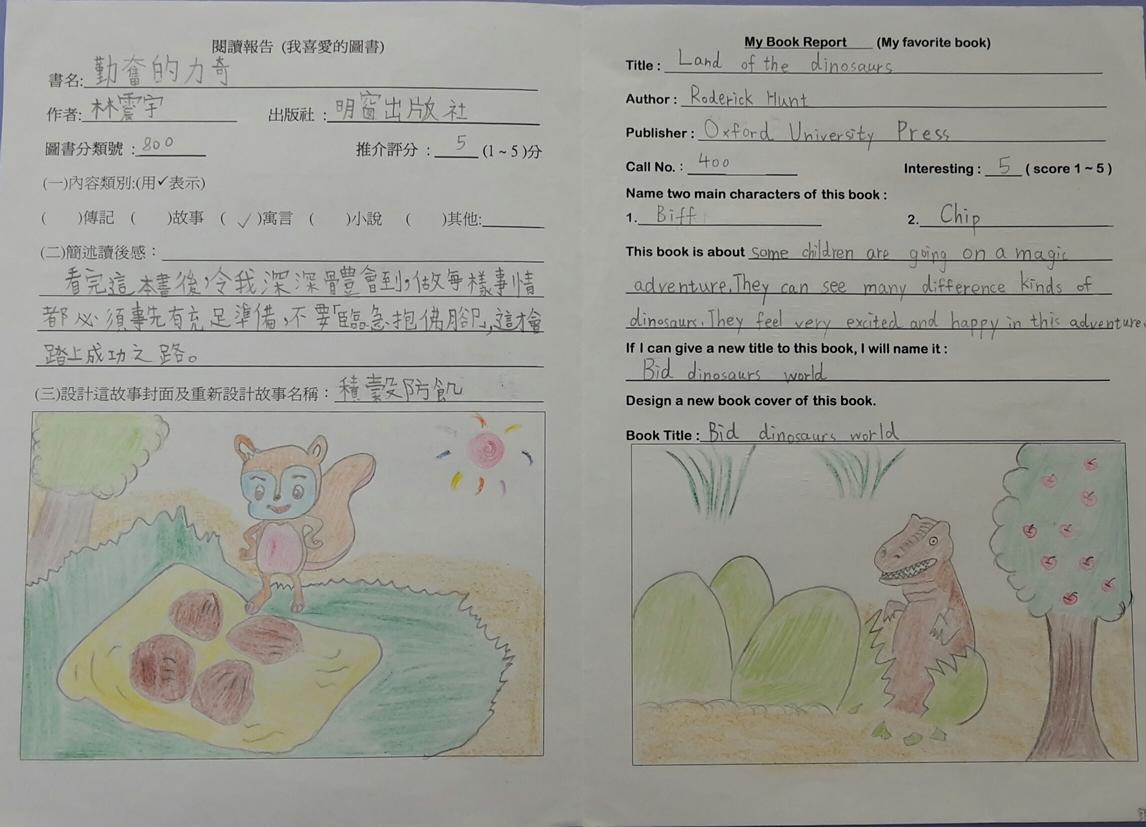 閱讀報告 (我喜愛的圖書)
書名: 勤奮的力奇
作者: 林震宇 出版社 : 明窗出版社
圖書分類號 : 800 推介評分 : 5 (1 ~ 5 )分
(一)內容類別:(用✔表示)
( )傳記 ( )故事 ( ✓ )寓言 ( )小說 ( )其他:
(二)簡述讀後感 :
看完這本書後,令我深深體會到,做每樣事情
都必須事先有充足準備,不要「臨急抱佛腳」,這才會
踏上成功之路。
(三)設計這故事封面及重新設計故事名稱 : 積穀防飢
My Book Report (My favorite book)
Title : Land of the dinosaurs
Author : Roderick Hunt
Publisher : Oxford University Press
Call No. : 400 Interesting : 5 ( score 1 ~ 5 )
Name two main characters of this book :
1. Biff 2. Chip
This book is about some children are going on a magic
adventure. They can see many difference kinds of
dinosaurs. They feel very excited and happy in this adventure.
If I can give a new title to this book, I will name it :
Bid dinosaurs world
Design a new book cover of this book.
Book Title : Bid dinosaurs world